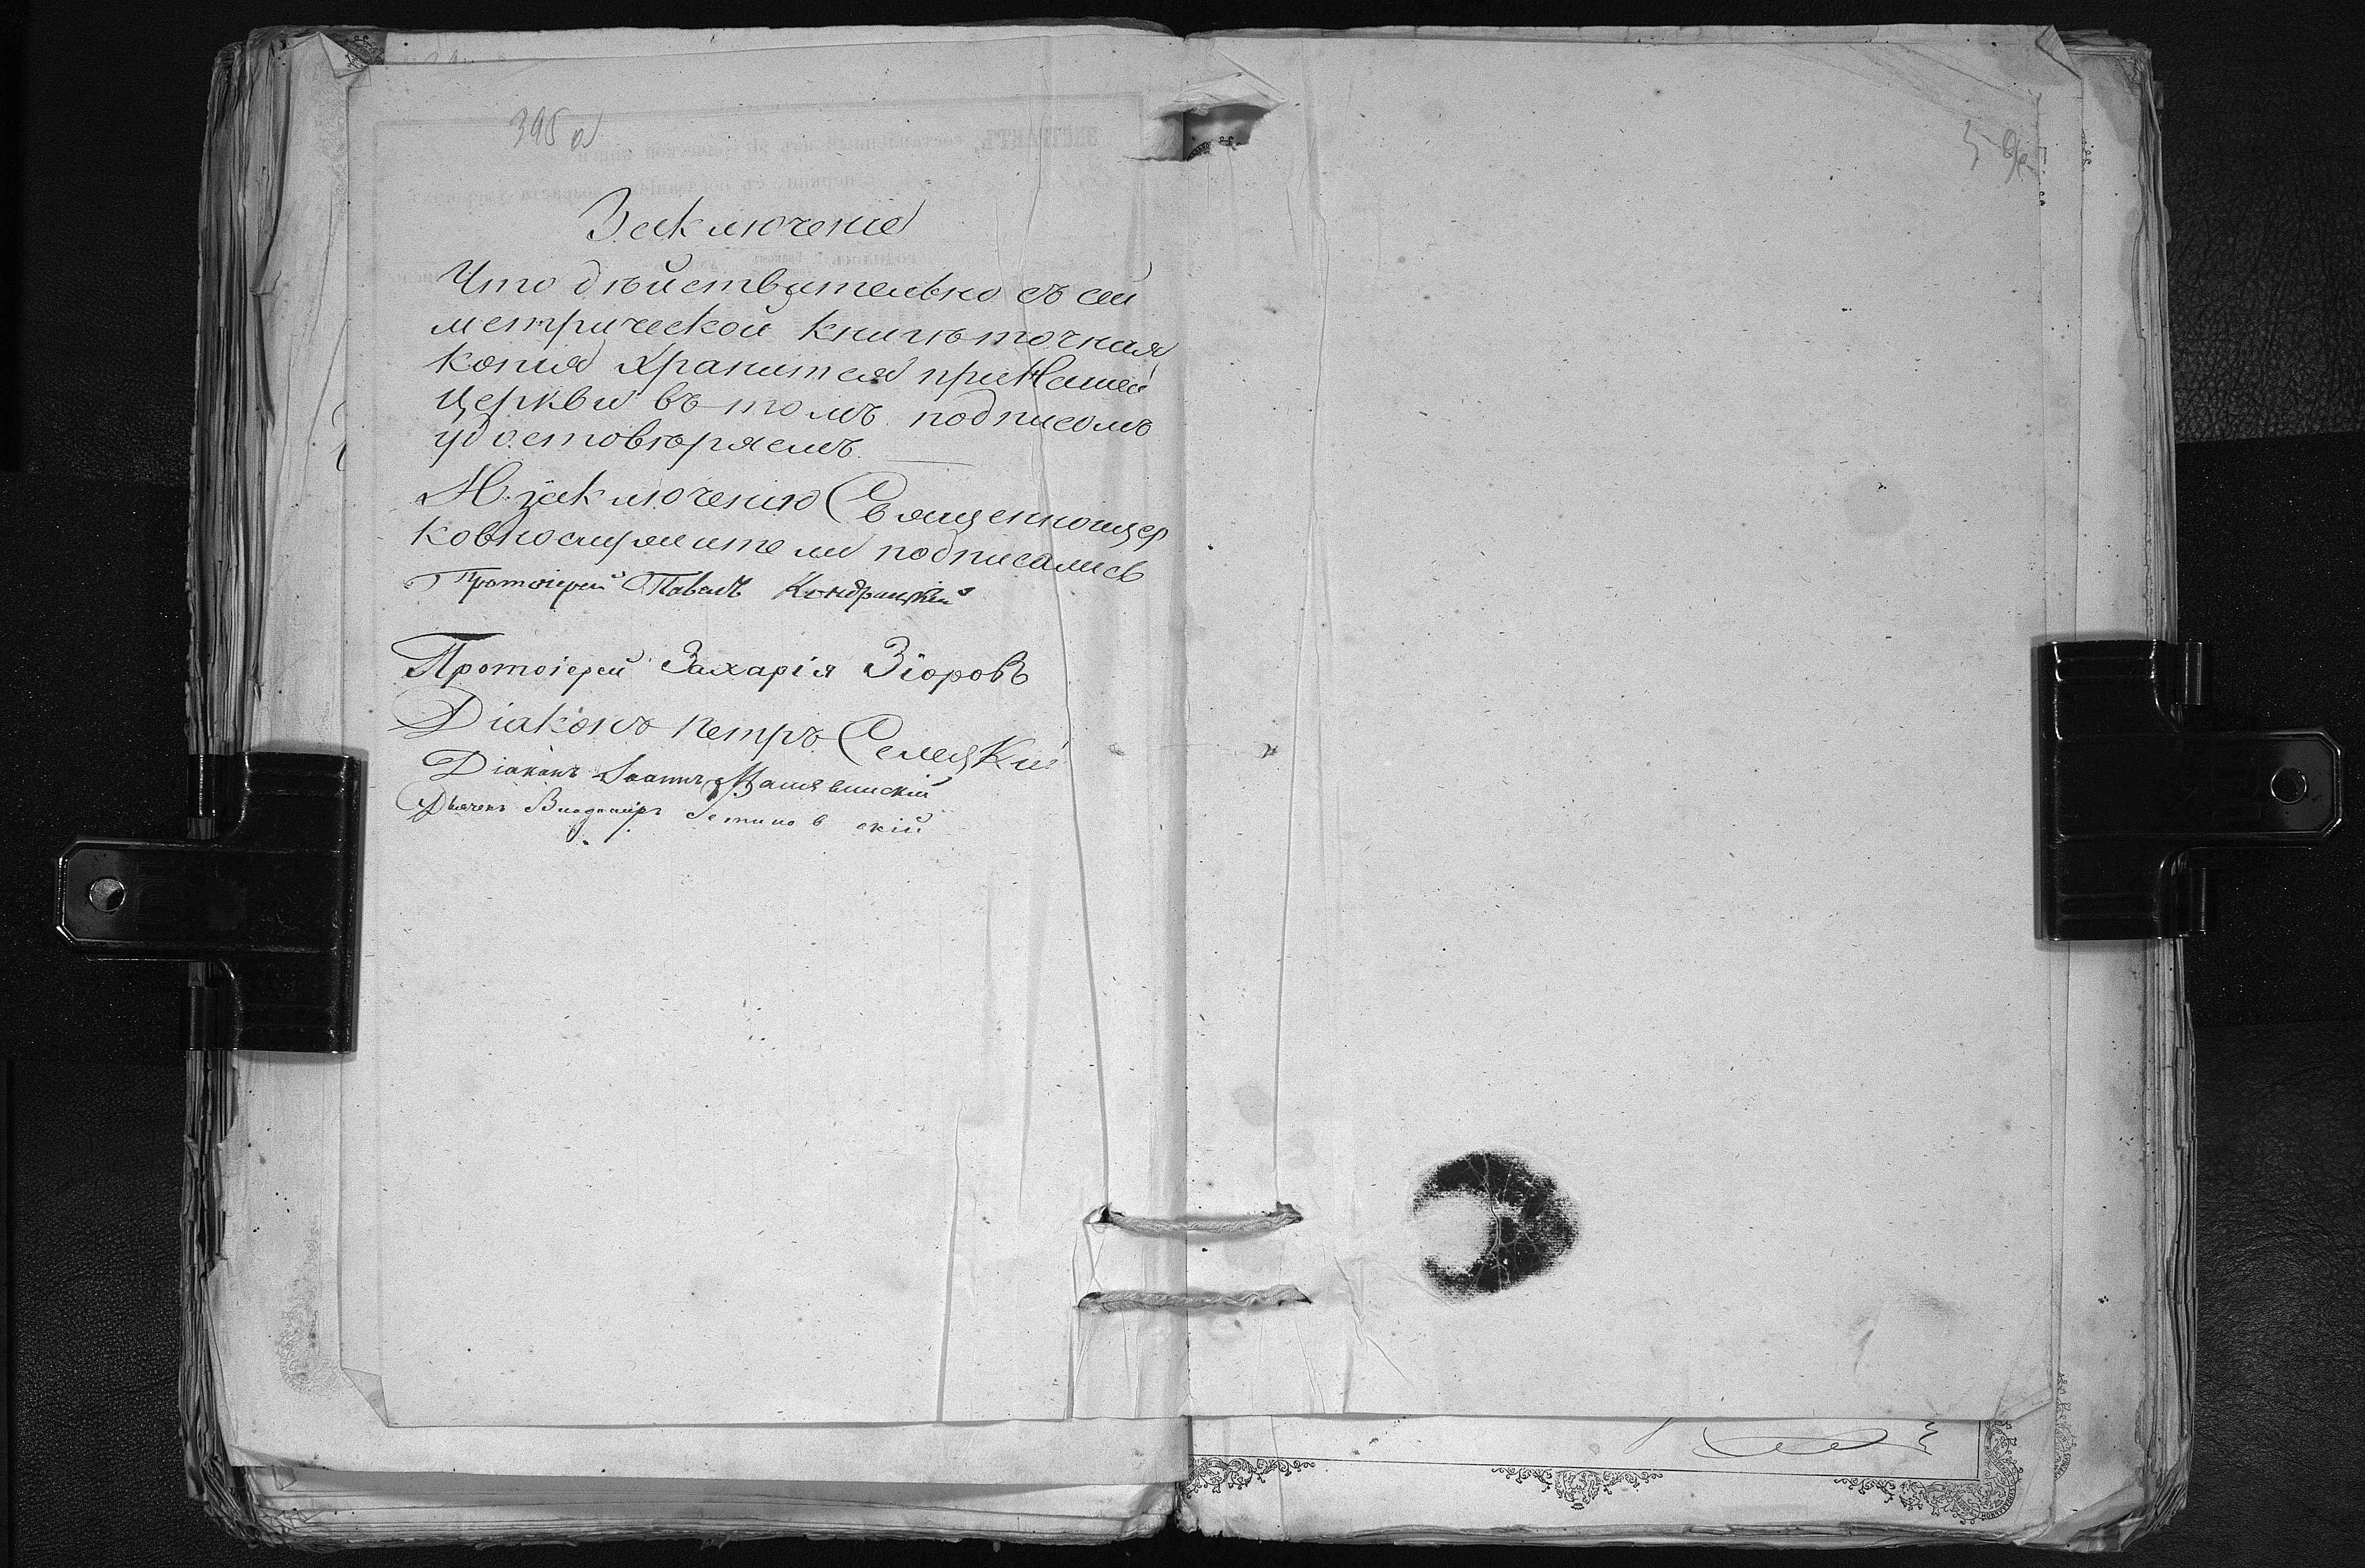 395 об
Заключеніе
Что дѣйствительно съ сей
метрической книги точная
копія хранится при Нашей
Церкви въ томъ подписомъ
удостовѣряемъ.
К заключенію Священноцер
ковнослужители подписались
Протоіерей Павелъ Кондрацкій
Протоіерей Захарія Зіоровъ
Діаконъ Петръ Селецкій
Діаконъ Іоаннъ
Дьячекъ Владиміръ